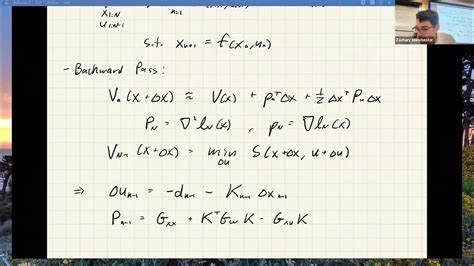 x₁:N
u₁:N-1
n=1
s.t. xₙ₊₁ = f(xₙ,uₙ)
- Backward Pass:
Vₙ(x+Δx) ≈ V(x) + pₙᵀΔx + ½ Δxᵀ Pₙ Δx
P_N = ∇²l_N(x) , p_N = ∇l_N(x)
V_N-1(x+Δx) = min_Δu S(x+Δx, u+Δu)
⇒ Δuₙ₋₁ = -dₙ₋₁ - Kₙ₋₁ Δxₙ₋₁
Pₙ₋₁ = Gₓₓ + KᵀGᵤᵤK - GₓᵤK
Zachary Manchester